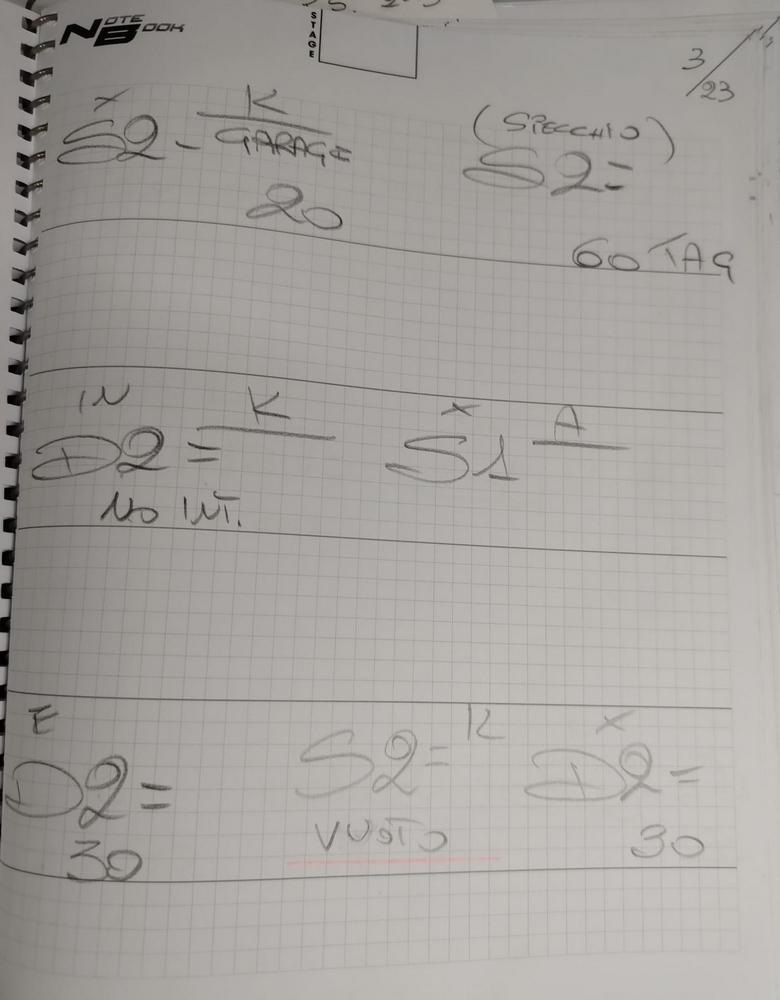 NOTE BOOK
STAGE
3/23
X K
S2 - GARAGE (SPECCHIO)
S2=
20
60 TAG
IN K X A
D2= S1
NO INT.
E K X
D2= S2= D2=
30 VUOTO 30